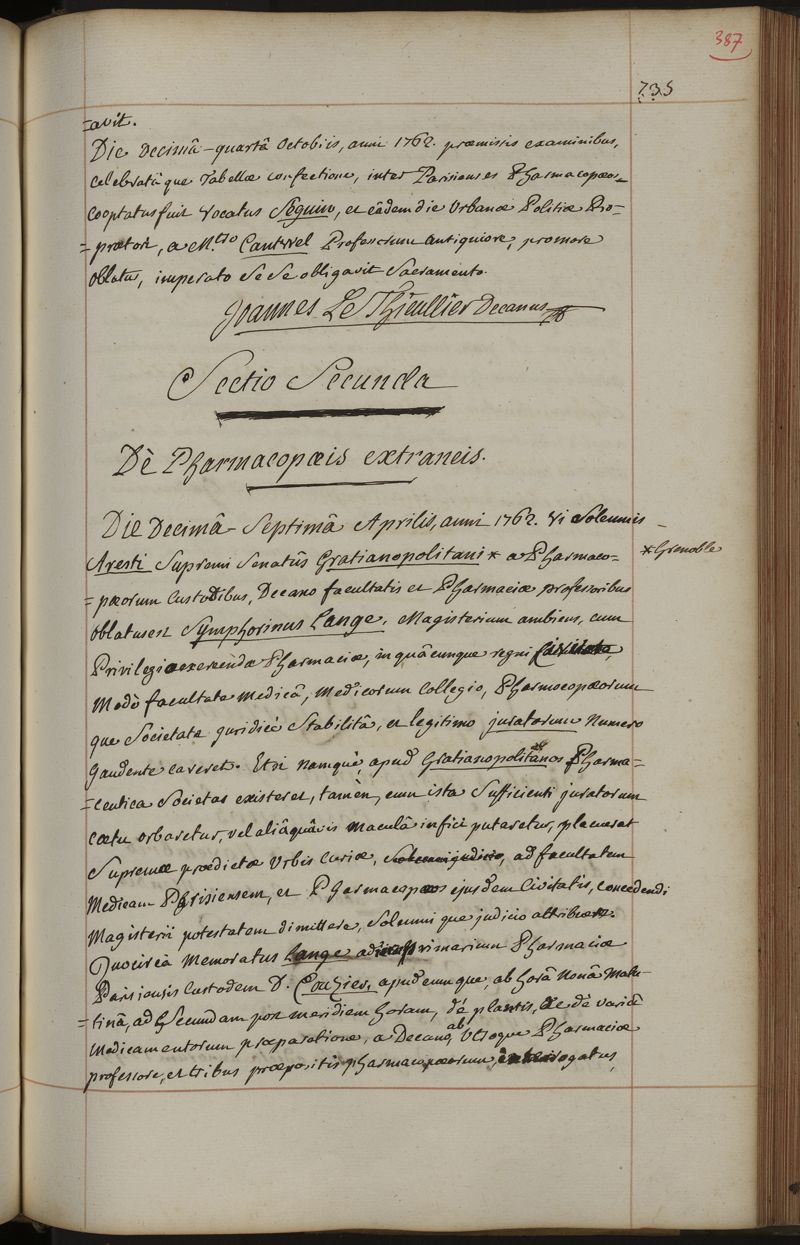 387
235
=avit.
Die Decimâ-quartâ Octobris, anni 1762. praemissis examinibus,
celebratâ que Tabellae confectione, inter Parisienses Pharmacopaeos
cooptatus fuit vocatus Séguin, et eâdem die Urbanae Politiae Pro-
=praetori, a M.tro Cantwel Professorum antiquiore, promore
oblatus, imperato se se obligavit sacramento.
Joannes Le Thieullier Decanus
Sectio Secunda
Dè Pharmacopaeis extraneis.
Die Decimâ-Septimâ Aprilis, anni 1762. vi solemnis
Aresti Supremi Senatûs Gratianopolitani * a Pharmaco=
* Grenoble
=paeorum Custodibus, Decano facultatis et Pharmaciae professoribus
oblatus est Symphorinus Lange, Magisterium ambiens, cum
Privilegio exercendae Pharmaciae, in quâcunque regni Civitate,
Modò facultate Medicâ, Medicorum Collegio, Pharmocopaeorum
que Societate juridicè Stabilitâ, et legitimo juratorum Numero
gaudente careret. Etsi namquè, apud Gratianopolitanos Pharma=
=ceutica Societas existeret, tamèn, cum ista sufficienti juratorum
caetu orbaretur, vel aliâ quâvis maculâ infici putaretur, placuerat
Supremae praedictae Urbis Curiae, ad facultatem
Medicam Parisiensem, et Pharmacopaeos ejusdem Civitatis, concedendi
Magisterii potestatem dimittere, solemni que judicio attribuere.
Quocircà Memoratus Lange primarium Pharmaciae
Parisiensis Custodem D. Couzier, apud eum que, ab horâ nonâ matu-
=tinâ, ad Secundam post meridiem horam, dè plantis, ac dè variâ
Medicamentorum praeparatione, a Decano, ab Utroque Pharmaciae
professore, et tribus praepositis pharmacopaeorum, interrogatus,